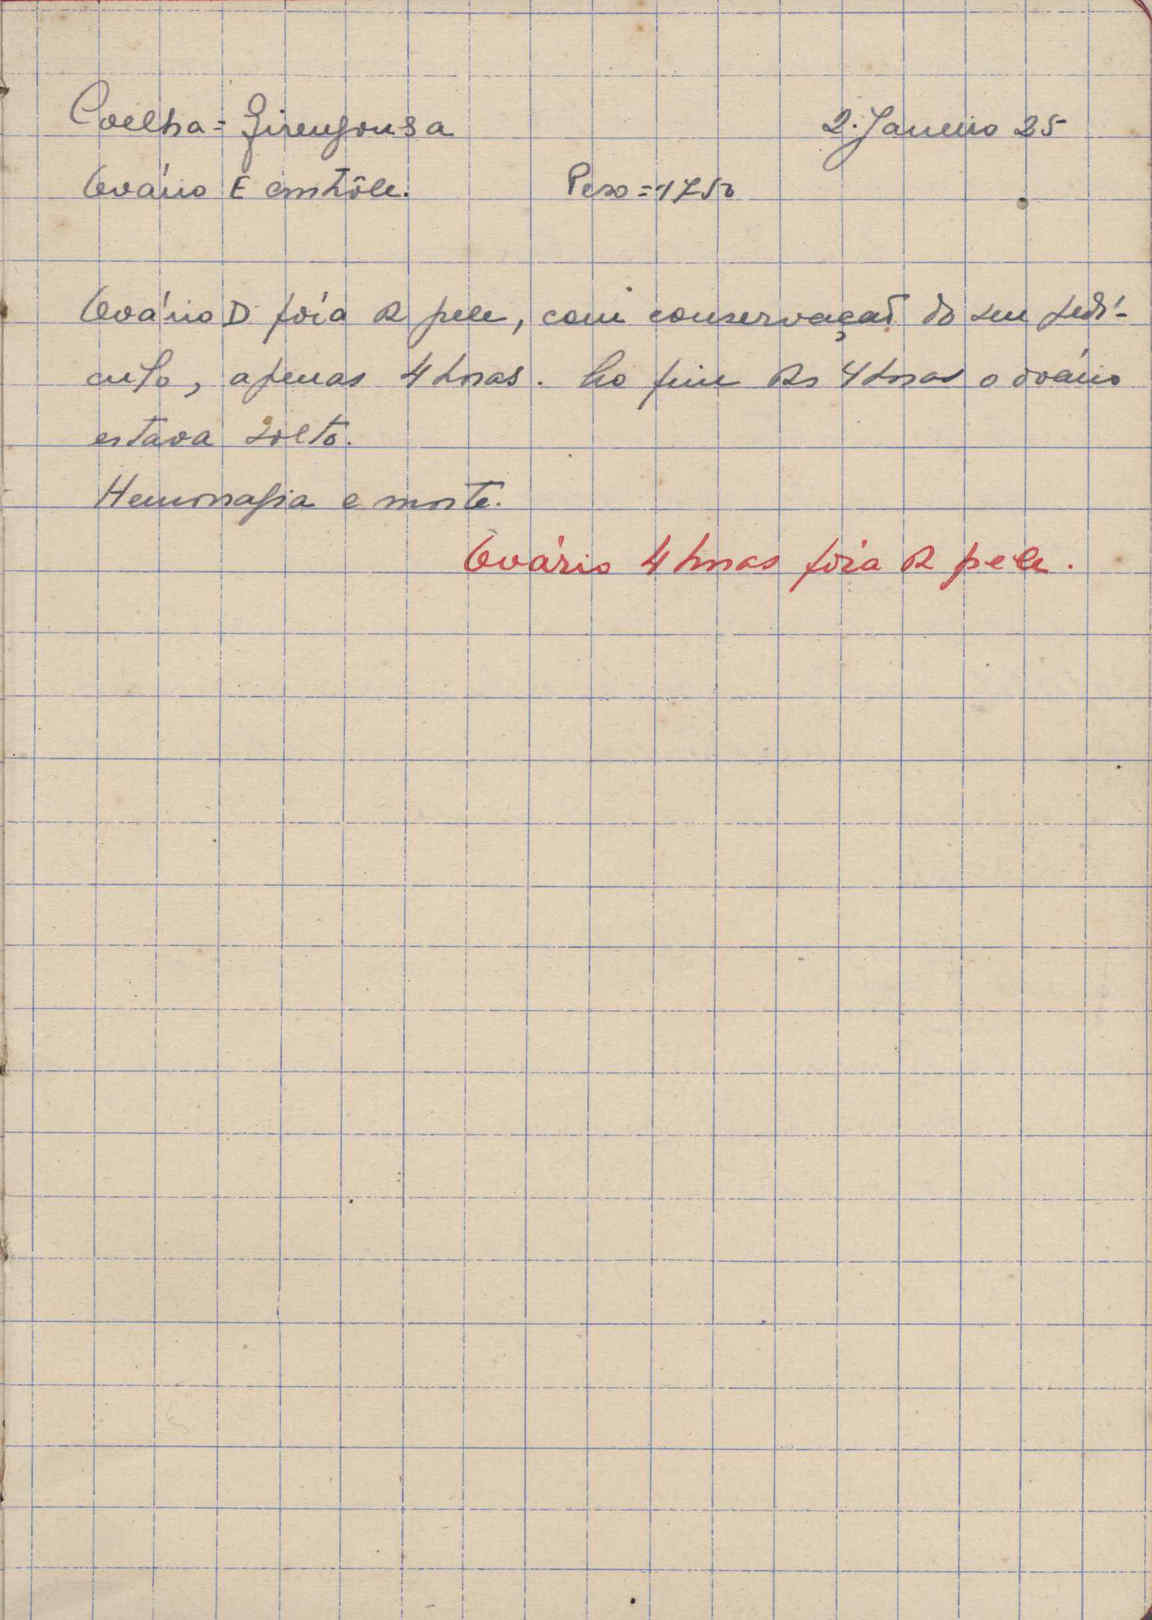 Coelha = 2. Janeiro 25
Ovário E contrôle. Peso = 1750
Ovário D fóra de pele, com conservação do seu pedí-
culo, apenas 4 horas. No fim das 4 horas o ovário
estava solto.
Hemorragia e morte.
Ovário 4 horas fóra da pele.